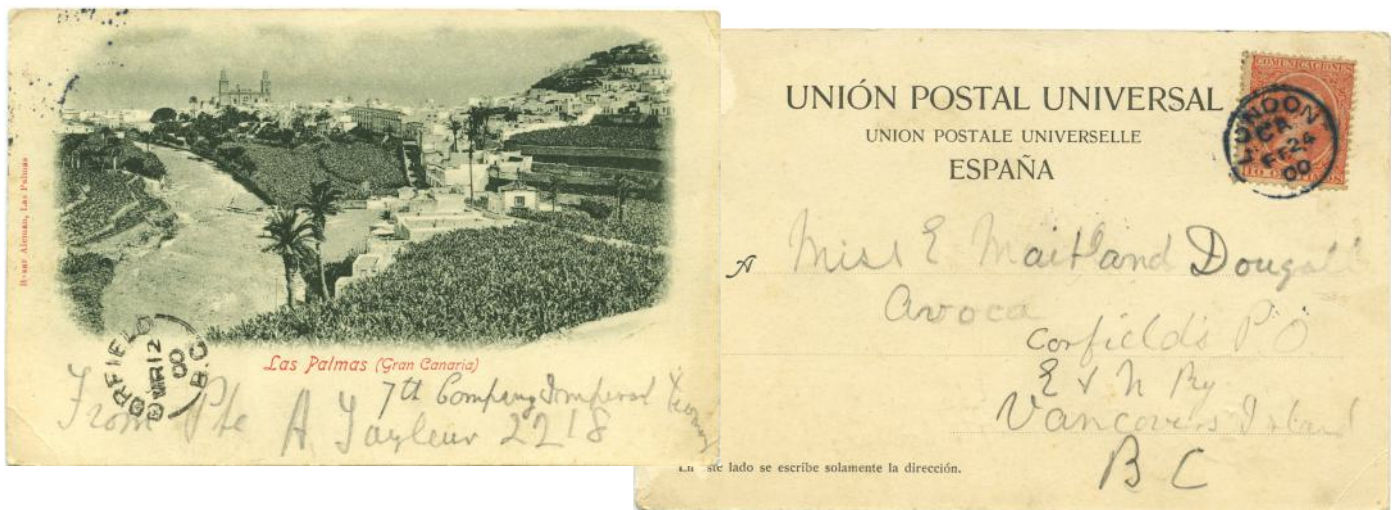 R-sar Aleman, Las Palmas
CORFIELD
MR 12
00
B.C
Las Palmas (Gran Canaria)
7th Company Imperial
From Pte A Tayleur 2218
UNIÓN POSTAL UNIVERSAL
UNION POSTALE UNIVERSELLE
ESPAÑA
COMUNICACIONES
LONDON
CA
FE 24
00
10
A Miss E Maitland Dougall
Avoca
Corfields P.O
E & N Ry
Vancouvers Island
B C
En este lado se escribe solamente la dirección.